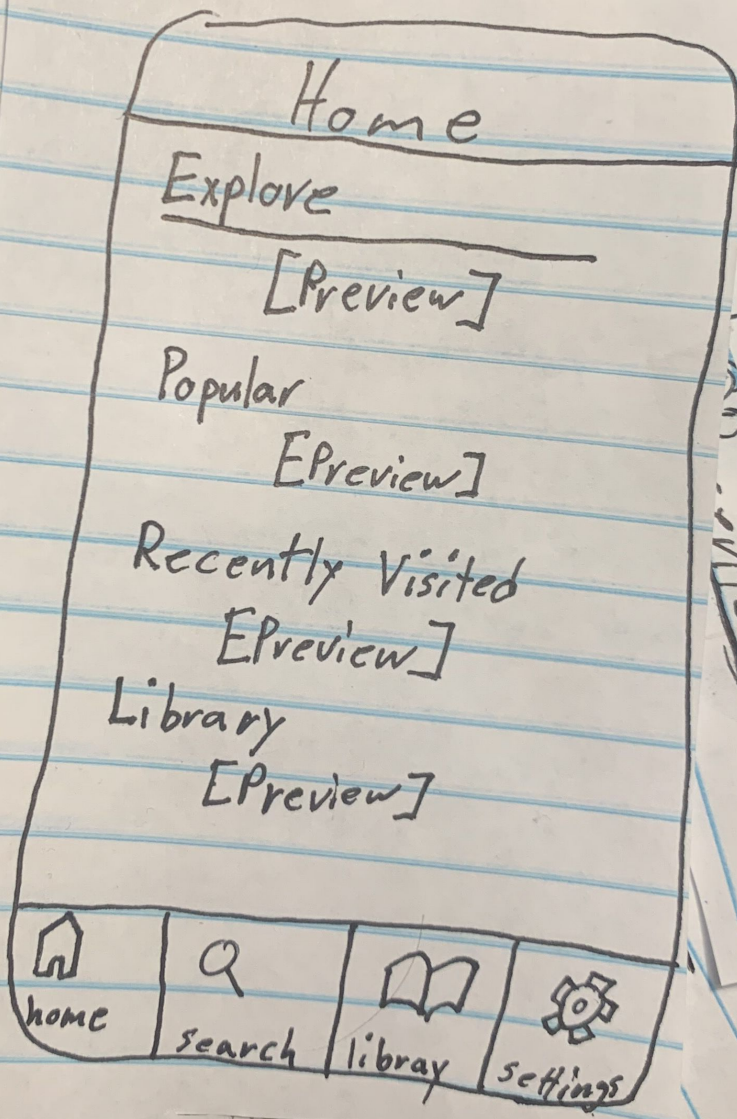 Home
Explore
[Preview]
Popular
[Preview]
Recently Visited
[Preview]
Library
[Preview]
home search libray settings